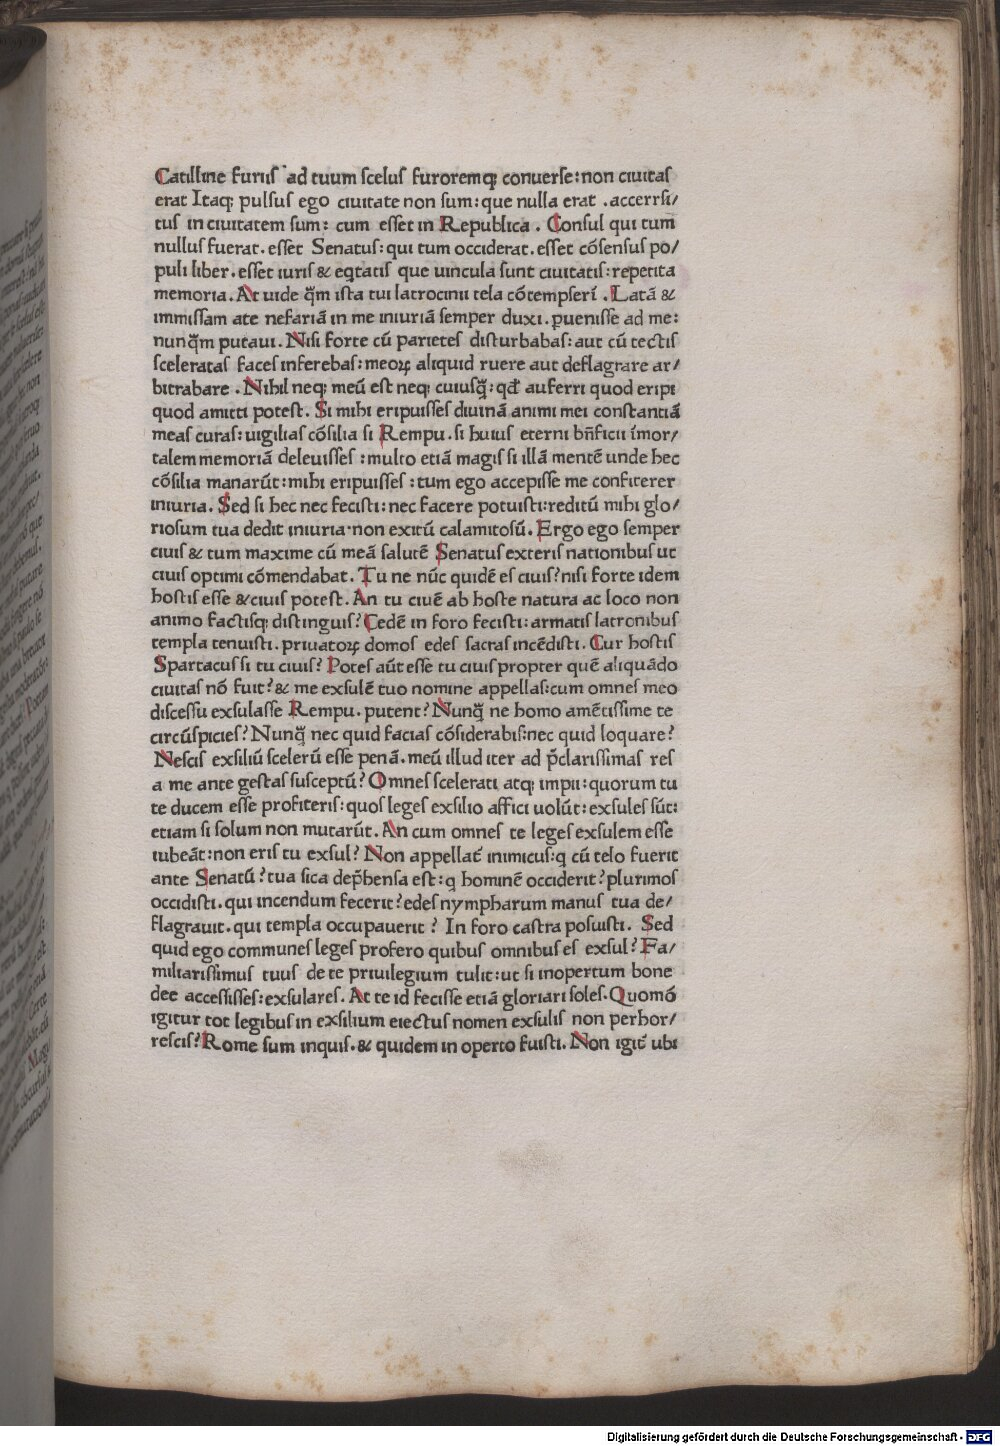 Catilline furiis ad tuum scelus furoremq; conuerse: non ciuitas
erat Itaq; pulsus ego ciuitate non sum: que nulla erat . accersi/
tus in ciuitatem sum: cum esset in Republica . Consul qui tum
nullus fuerat. esset Senatus: qui tum occiderat. esset cōsensus po/
puli liber. esset iuris & eq̇tatis que uincula sunt ciuitatis: repetita
memoria. At uide q̄m ista tui latrocinii tela cōtempserī . Latā &
immissam ate nefariā in me iniuriā semper duxi. ꝑuenisse ad me:
nunq̄m putaui. Nisi forte cū parietes disturbabas: aut cū tectis
sceleratas faces inferebas: meoꝝ aliquid ruere aut deflagrare ar/
bitrabare . Nihil neq; meū est neq; cuiusq̄: qđ auferri quod eripi
quod amitti potest. Si mihi eripuisses diuinā animi mei constantiā
meas curas: uigilias cōsilia si Rempu. si huius eterni bn̄ficii īmor/
talem memoriā deleuisses : multo etiā magis si illā mentē unde hec
cōsilia manarūt: mihi eripuisses : tum ego accepisse me confiterer
iniuria. Sed si hec nec fecisti: nec facere potuisti: reditū mihi glo/
riosum tua dedit iniuria·non exitū calamitosū. Ergo ego semper
ciuis & tum maxime cū meā salutē Senatus exteris nationibus ut
ciuis optimi cōmendabat. Tu ne nūc quidē es ciuis? nisi forte idem
hostis esse & ciuis potest. An tu ciuē ab hoste natura ac loco non
animo factisq; distinguis? Cedē in foro fecisti: armatis latronibus
templa tenuisti. priuatoꝝ domos edes sacras incēdisti. Cur hostis
Spartacus si tu ciuis? Potes aūt esse tu ciuis propter quē aliquādo
ciuitas nō fuit? & me exsulē tuo nomine appellas: cum omnes meo
discessu exsulasse Rempu. putent? Nunq̄ ne homo amētissime te
circūspicies? Nunq̄ nec quid facias cōsiderabis: nec quid loquare?
Nescis exsiliū scelerū esse penā. meū illud iter ad p̄clarissimas res
a me ante gestas susceptū? Omnes scelerati atq; impii: quorum tu
te ducem esse profiteris: quos leges exsilio affici uolūt: exsules sūt:
etiam si solum non mutarūt. An cum omnes te leges exsulem esse
iubeāt: non eris tu exsul? Non appellat̄ inimicus: q cū telo fuerit
ante Senatū? tua sica dep̄hensa est: q hominē occiderit? plurimos
occidisti. qui incendum fecerit? edes nympharum manus tua de/
flagrauit. qui templa occupauerit ? In foro castra posuisti. Sed
quid ego communes leges profero quibus omnibus es exsul? Fa/
miliarissimus tuus de te priuilegium tulit: ut si inopertum bone
dee accessisses: exsulares. At te id fecisse etiā gloriari soles. Quomō
igitur tot legibus in exsilium eiectus nomen exsulis non perhor/
rescis? Rome sum inquis. & quidem in operto fuisti. Non igit̄ ubi
Digitalisierung gefördert durch die Deutsche Forschungsgemeinschaft - DFG